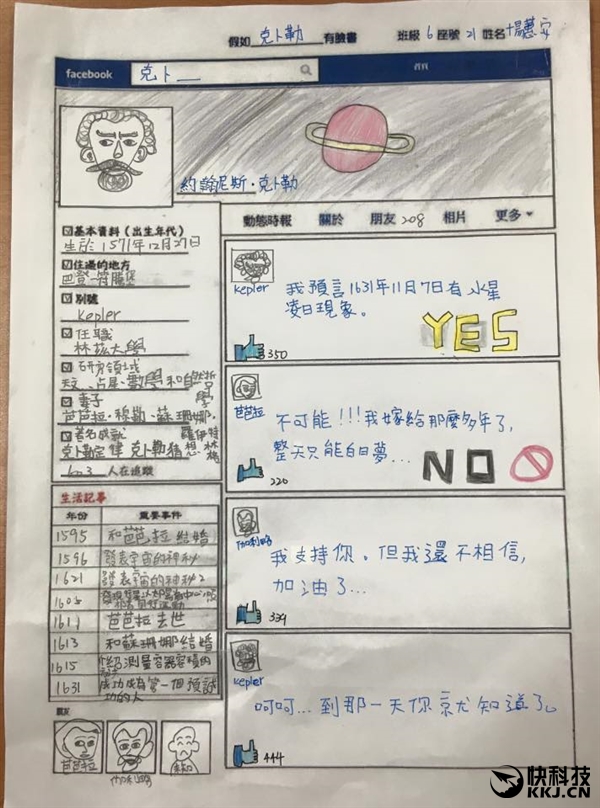 假如 克卜勒 有臉書 班級 6 座號 21 姓名 楊蕙安
facebook 克卜
約翰尼斯·克卜勒
動態時報 關於 朋友 208 相片 更多
基本資料（出生年代）
生於1571年12月27日
住過的地方
別號
Kepler
任職
林茲大學
研究領域
天文、占星、數學和自然哲學
妻子
芭芭拉·穆勒、蘇珊娜·羅伊特林格
著名成就
克卜勒定律 克卜勒猜想
人在追蹤
生活記事
年份 重要事件
1595 和芭芭拉結婚
1596 發表宇宙的神秘
1621 發表宇宙的神秘2
1605
1611 芭芭拉去世
1613 和蘇珊娜結婚
1615
1631
親友
芭芭拉
伽利略
Kepler
我預言1631年11月7日有水星
凌日現象。
YES
350
芭芭拉
不可能!!!我嫁給那麼多年了,
整天只能白日夢...
NO
220
伽利略
我支持你。但我還不相信,
加油了...
339
Kepler
呵呵...到那一天你就知道了。
444
快科技
KKJ.CN